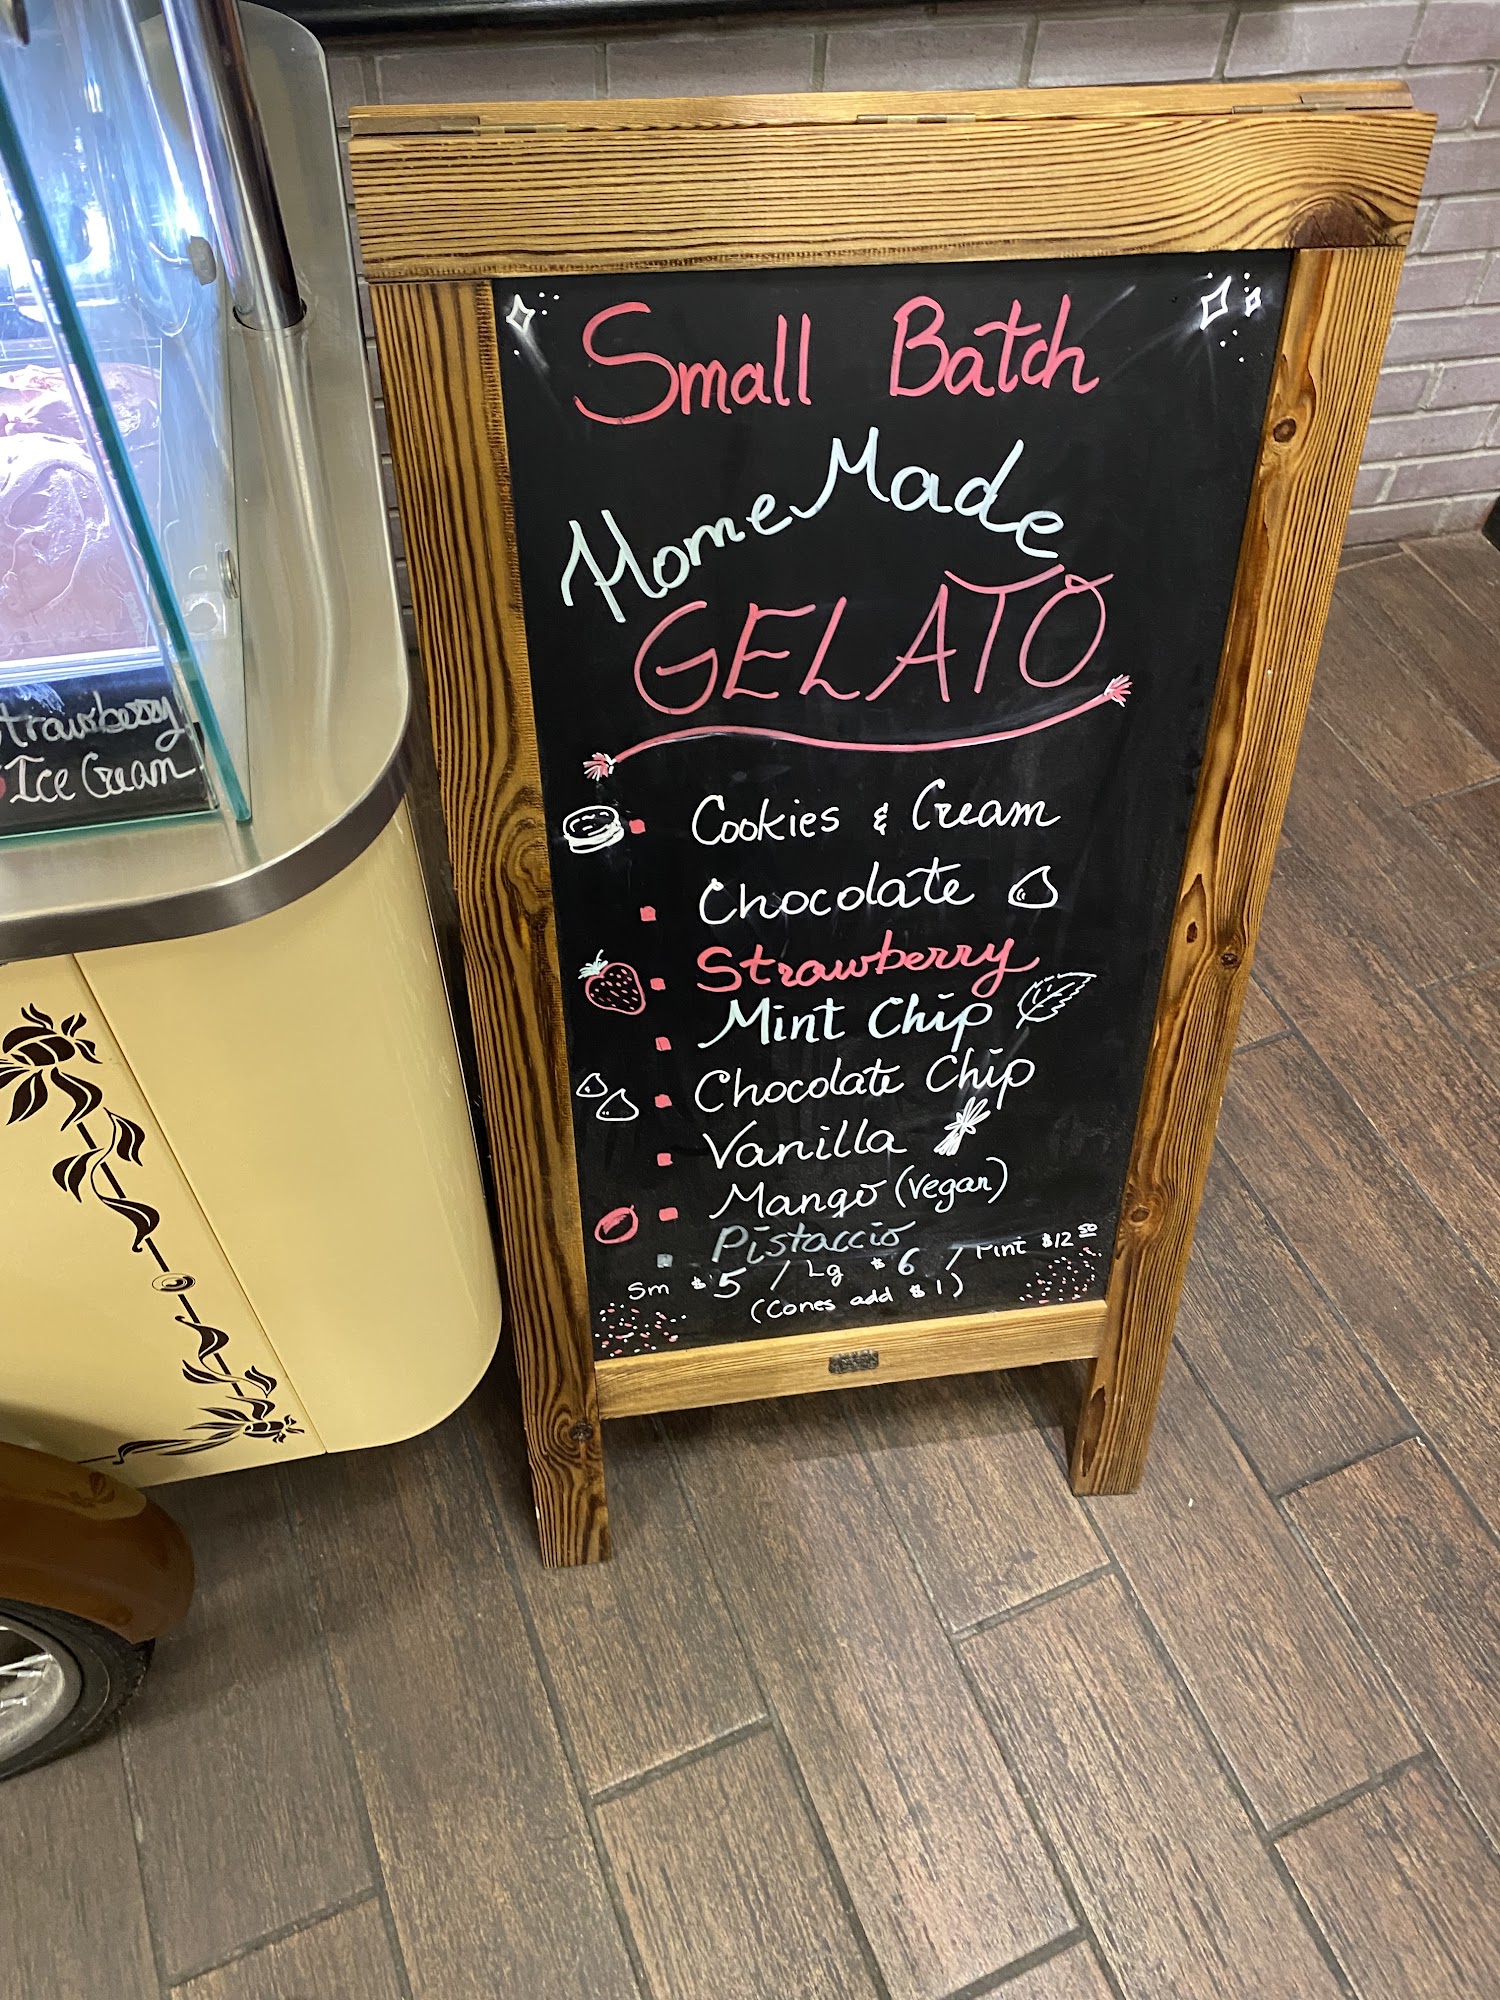 Small Batch
HomeMade
GELATO
Cookies & Cream
Chocolate
Strawberry
Mint Chip
Chocolate Chip
Vanilla
Mango (vegan)
Pistaccio
Sm $5 / Lg $6 / Pint $12 50
(Cones add $1)
trawberry
Ice Cream